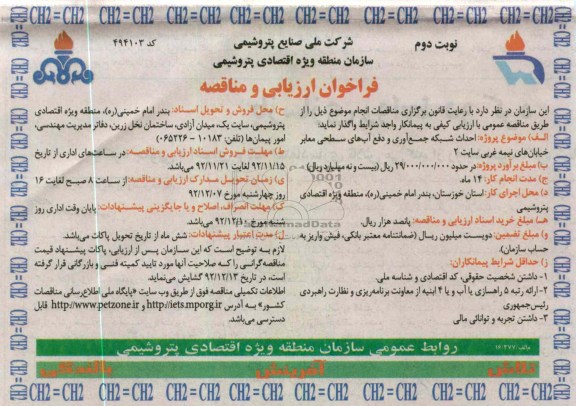 CH2 = CH2 = CH2 = CH2 = CH2 = CH2 = CH2 = CH2
نوبت دوم
شرکت ملی صنایع پتروشیمی
کد ۴۹۴۱۰۳
سازمان منطقه ویژه اقتصادی پتروشیمی
فراخوان ارزیابی و مناقصه
این سازمان در نظر دارد با رعایت قانون برگزاری مناقصات انجام موضوع ذیل را از
طریق مناقصه عمومی با ارزیابی کیفی به پیمانکار واجد شرایط واگذار نماید:
الف) موضوع پروژه: احداث شبکه جمع‌آوری و دفع آبهای سطحی معابر
خیابان‌های نیمه غربی سایت ۲
ب) مبلغ برآورد پروژه: در حدود ۲۹/۰۰۰/۰۰۰/۰۰۰ ریال (بیست و نه میلیارد ریال)
ج) مدت انجام کار: ۱۴ ماه
د) محل اجرای کار: استان خوزستان، بندر امام خمینی(ره)، منطقه ویژه اقتصادی
پتروشیمی
هـ) مبلغ خرید اسناد ارزیابی و مناقصه: پانصد هزار ریال.
و) مبلغ تضمین: دویست میلیون ریال (ضمانتنامه معتبر بانکی، فیش واریز به
حساب سازمان).
ز) حداقل شرایط پیمانکاران:
۱- داشتن شخصیت حقوقی، کد اقتصادی و شناسه ملی.
۲- ارائه رتبه ۵ راهسازی یا آب و یا ۴ ابنیه از معاونت برنامه‌ریزی و نظارت راهبردی
رئیس‌جمهوری
۳- داشتن تجربه و توانائی مالی
ح) محل فروش و تحویل اسناد: بندر امام خمینی(ره)، منطقه ویژه اقتصادی
پتروشیمی، سایت یک، میدان آزادی، ساختمان نخل زرین، دفاتر مدیریت مهندسی،
امور پیمان‌ها (تلفن: ۱۰۱۸۳-۰۶۵۲۲۶)
ط) مهلت فروش اسناد ارزیابی و مناقصه: در ساعت‌های اداری از تاریخ
۹۲/۱۱/۱۵ لغایت ۹۲/۱۱/۲۱ می‌باشد.
ی) زمان تحویل مدارک ارزیابی و مناقصه: از ساعت ۸ صبح لغایت ۱۶
روز چهارشنبه مورخ ۹۲/۱۲/۰۷
ک) مهلت انصراف، اصلاح و یا جایگزینی پیشنهادات: پایان وقت اداری روز
شنبه مورخ ۹۲/۱۲/۱۰ می‌باشد.
ل) مدت اعتبار پیشنهادات: شش ماه از تاریخ تحویل پاکات می‌باشد.
لازم به توضیح است که این سازمان پس از ارزیابی، پاکات پیشنهاد قیمت
مناقصه‌گرانی را که صلاحیت آنها مورد تایید کمیته فنی و بازرگانی قرار گرفته
است، در تاریخ ۹۲/۱۲/۱۳ گشایش می‌نماید.
اطلاعات تکمیلی مناقصه فوق از طریق وب سایت «پایگاه ملی اطلاع‌رسانی مناقصات
کشور» به آدرس http://iets.mporg.ir و http://www.petzone.ir قابل
دسترسی می‌باشد.
روابط عمومی سازمان منطقه ویژه اقتصادی پتروشیمی
CH2 = CH2 = CH2 = CH2 = CH2 = CH2 = CH2 = CH2